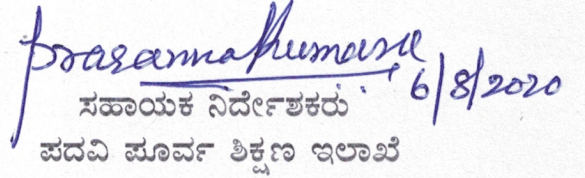 Prasannakumara
6/8/2020
ಸಹಾಯಕ ನಿರ್ದೇಶಕರು
ಪದವಿ ಪೂರ್ವ ಶಿಕ್ಷಣ ಇಲಾಖೆ